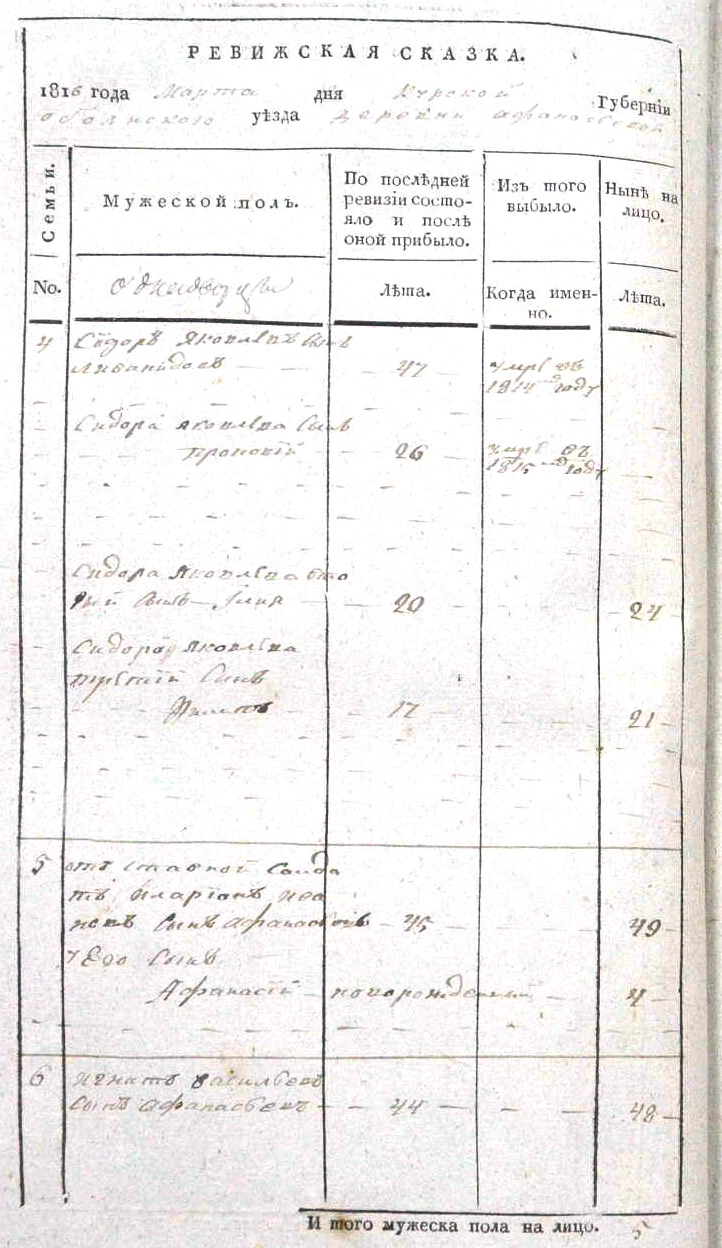 РЕВИЖСКАЯ СКАЗКА.
1816 года Марта дня Курской Губерніи
обоянского уѣзда деревни афанасьевой
Семьи.
Мужеской полъ.
По послѣдней
ревизіи состо-
яло и послѣ
оной прибыло.
Изъ того
выбыло.
Нынѣ на
лицо.
No.
однодворцы
Лѣта.
Когда имен-
но.
Лѣта.
4 Сидоръ Яковлевъ сынъ
47 умре въ
1814 году
Сидора яковлева сынъ
26 умре въ
году
Сидора Яковлева вто
рый сынъ Илия 20 24
Сидора Яковлева
третий сынъ
17 21
5 отставной солда
тъ Иларіонъ ива
новъ сынъ афанасьевъ 45 49
у Его сынъ
Афанасій новорожденный 4
6 игнатъ васильевъ
сынъ афанасьевъ 44 48
И того мужеска пола на лицо. 5